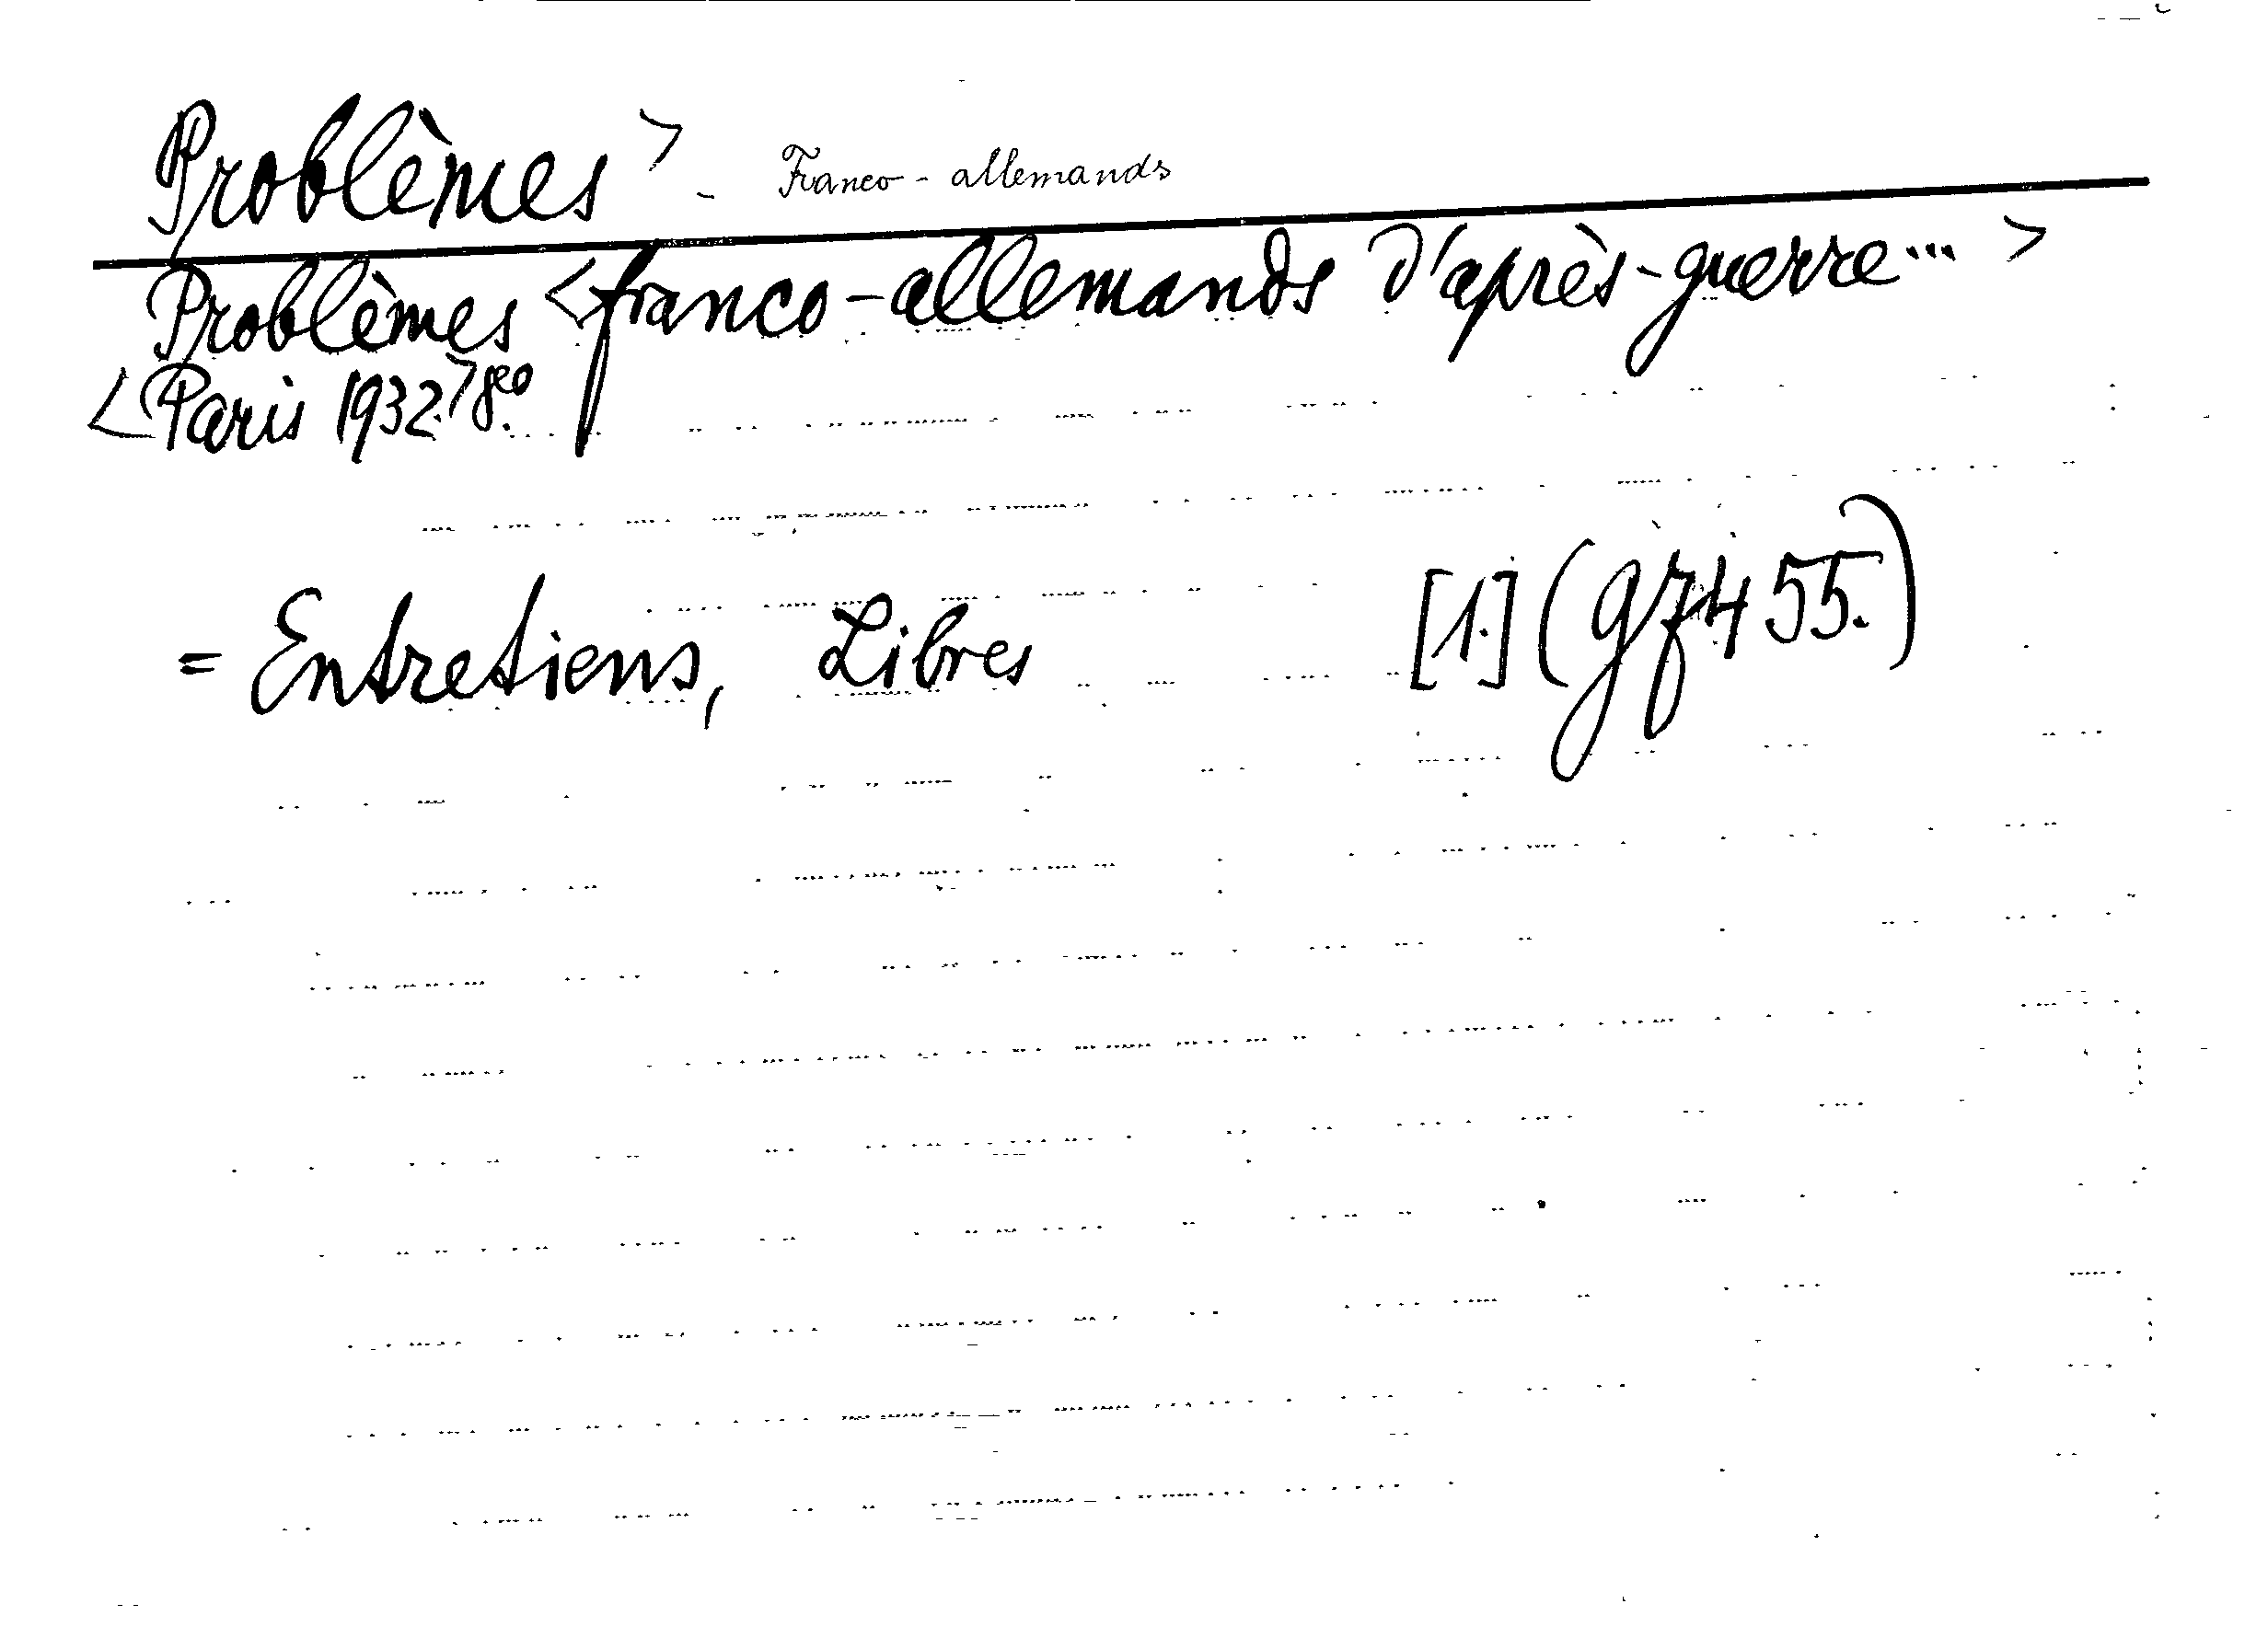 Problèmes > - Franco - allemands
Problèmes <franco-allemands d'après-guerre... >
<Paris 1932.> 8eo.
= Entretiens, Libres [1.] (gf455.)